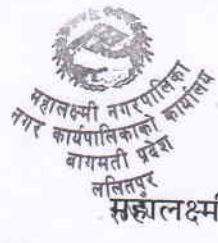 महालक्ष्मी नगरपालिका
नगर कार्यपालिकाको कार्यालय
बागमती प्रदेश
ललितपुर
महालक्ष्मी